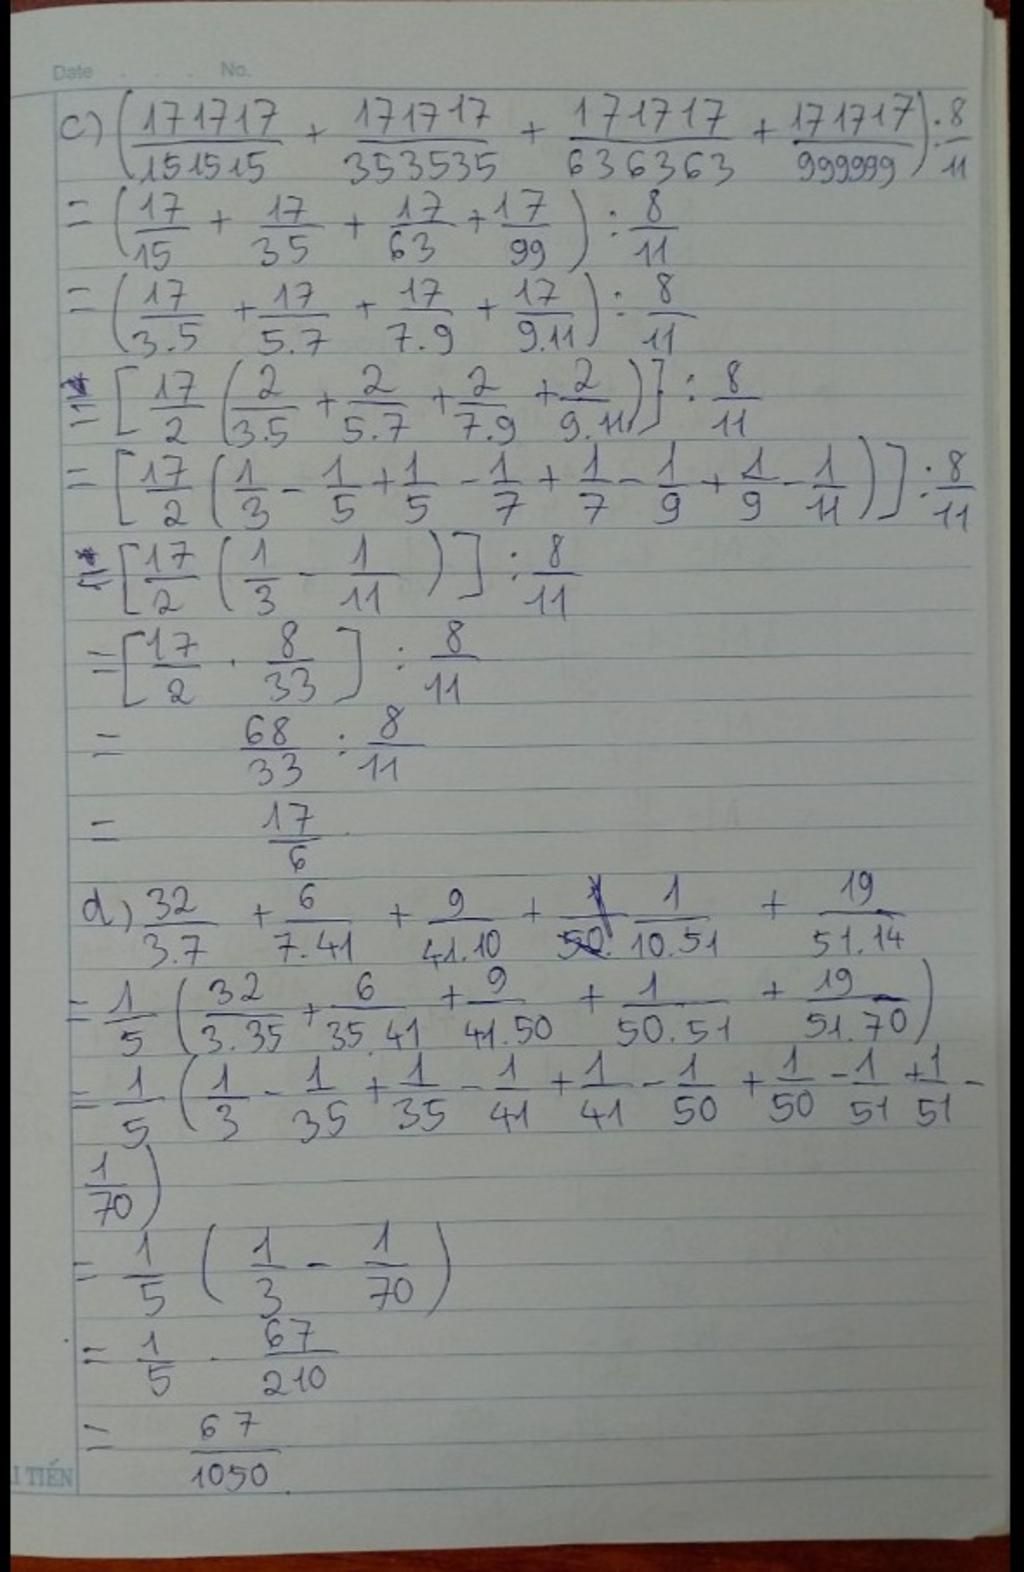 Date . . . No.
c) (171717/151515 + 171717/353535 + 171717/636363 + 171717/999999) : 8/11
= (17/15 + 17/35 + 17/63 + 17/99) : 8/11
= (17/3.5 + 17/5.7 + 17/7.9 + 17/9.11) : 8/11
= [17/2 (2/3.5 + 2/5.7 + 2/7.9 + 2/9.11)] : 8/11
= [17/2 (1/3 - 1/5 + 1/5 - 1/7 + 1/7 - 1/9 + 1/9 - 1/11)] : 8/11
= [17/2 (1/3 - 1/11)] : 8/11
= [17/2 . 8/33] : 8/11
= 68/33 : 8/11
= 17/6
d) 32/3.7 + 6/7.41 + 9/41.10 + 1/10.51 + 19/51.14
= 1/5 (32/3.35 + 6/35.41 + 9/41.50 + 1/50.51 + 19/51.70)
= 1/5 (1/3 - 1/35 + 1/35 - 1/41 + 1/41 - 1/50 + 1/50 - 1/51 + 1/51 -
1/70)
= 1/5 (1/3 - 1/70)
= 1/5 . 67/210
= 67/1050
I TIẾN